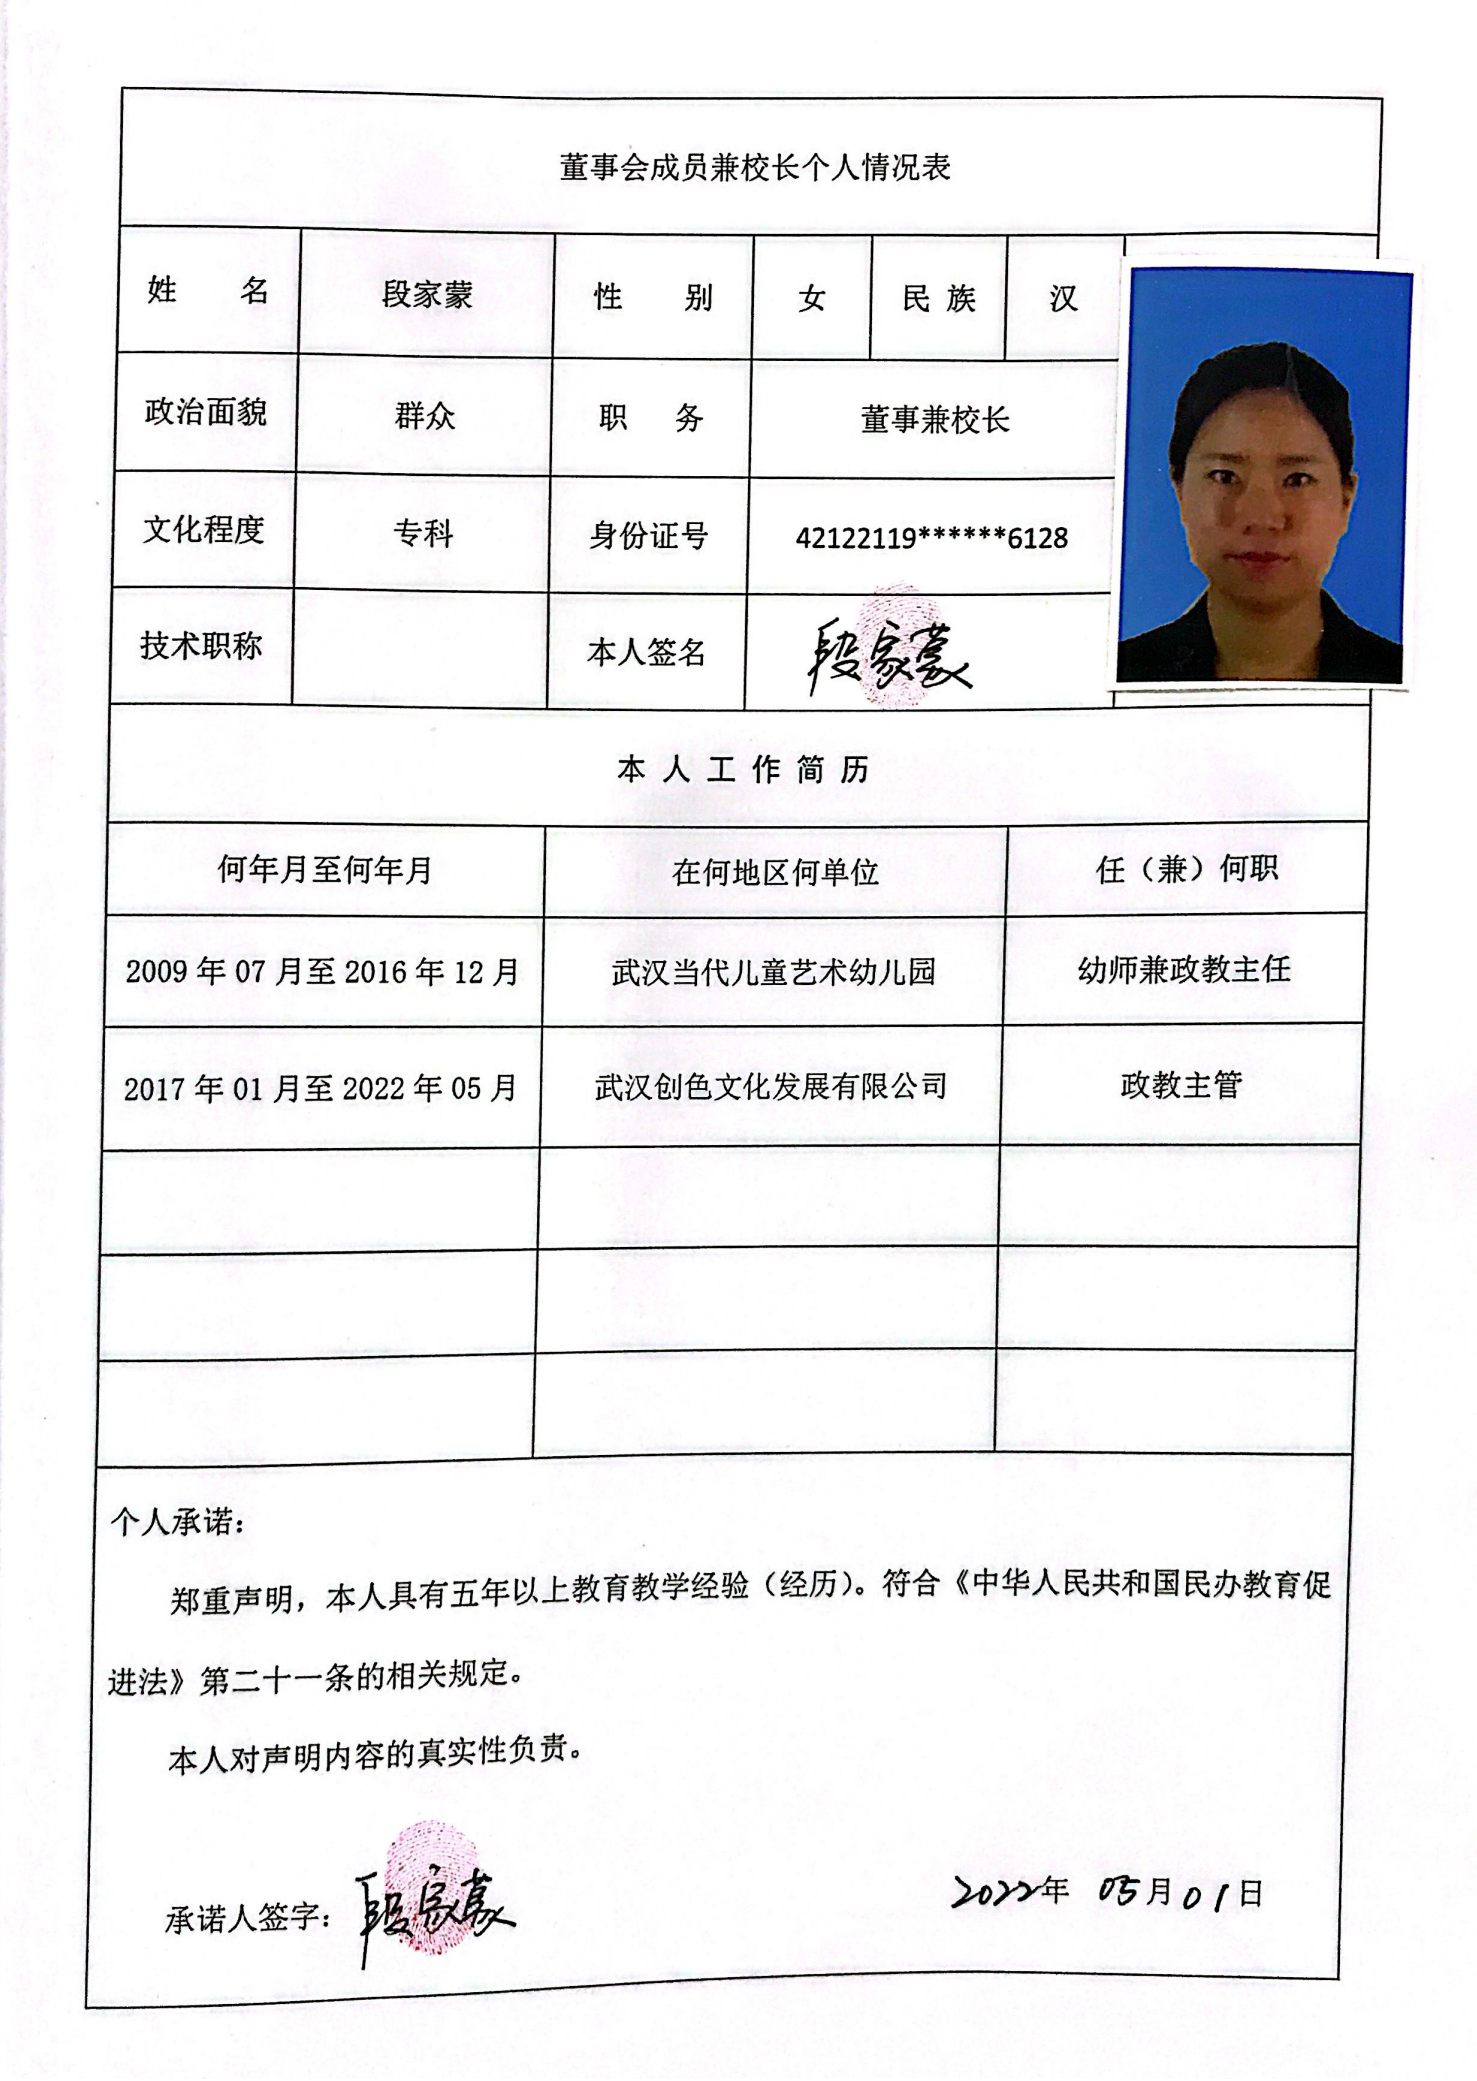 董事会成员兼校长个人情况表
姓 名 段家蒙 性 别 女 民族 汉
政治面貌 群众 职 务 董事兼校长
文化程度 专科 身份证号 42122119******6128
技术职称 本人签名 段家蒙
本人工作简历
何年月至何年月 在何地区何单位 任（兼）何职
2009年07月至2016年12月 武汉当代儿童艺术幼儿园 幼师兼政教主任
2017年01月至2022年05月 武汉创色文化发展有限公司 政教主管
个人承诺：
郑重声明，本人具有五年以上教育教学经验（经历）。符合《中华人民共和国民办教育促
进法》第二十一条的相关规定。
本人对声明内容的真实性负责。
承诺人签字：段家蒙 2022年 05月01日